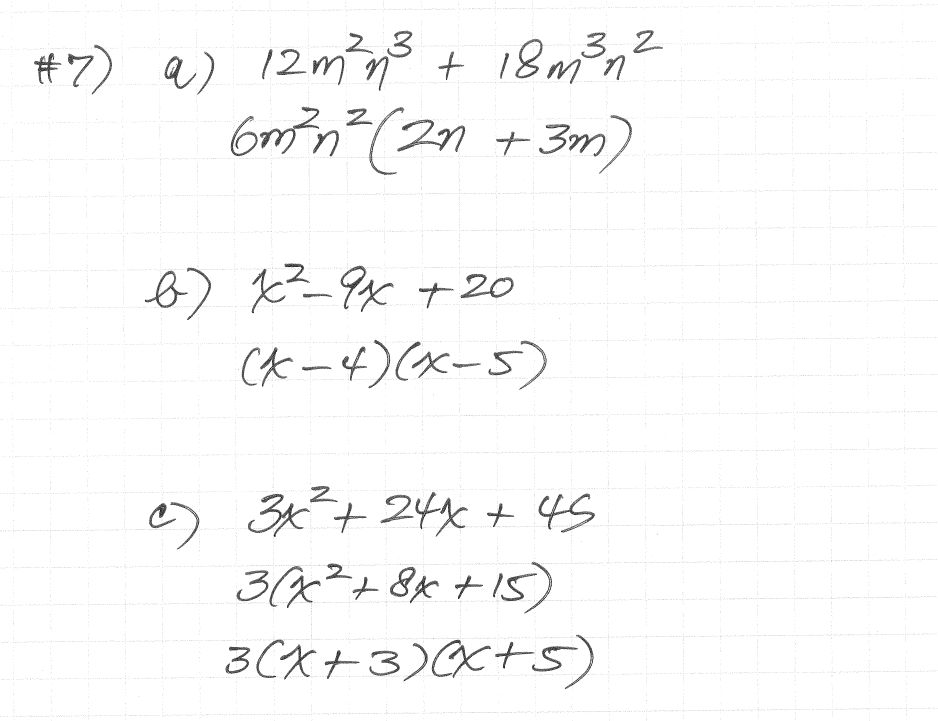 #7) a) 12m²n³ + 18m³n²
6m²n²(2n + 3m)
b) x² - 9x + 20
(x - 4)(x - 5)
c) 3x² + 24x + 45
3(x² + 8x + 15)
3(x + 3)(x + 5)